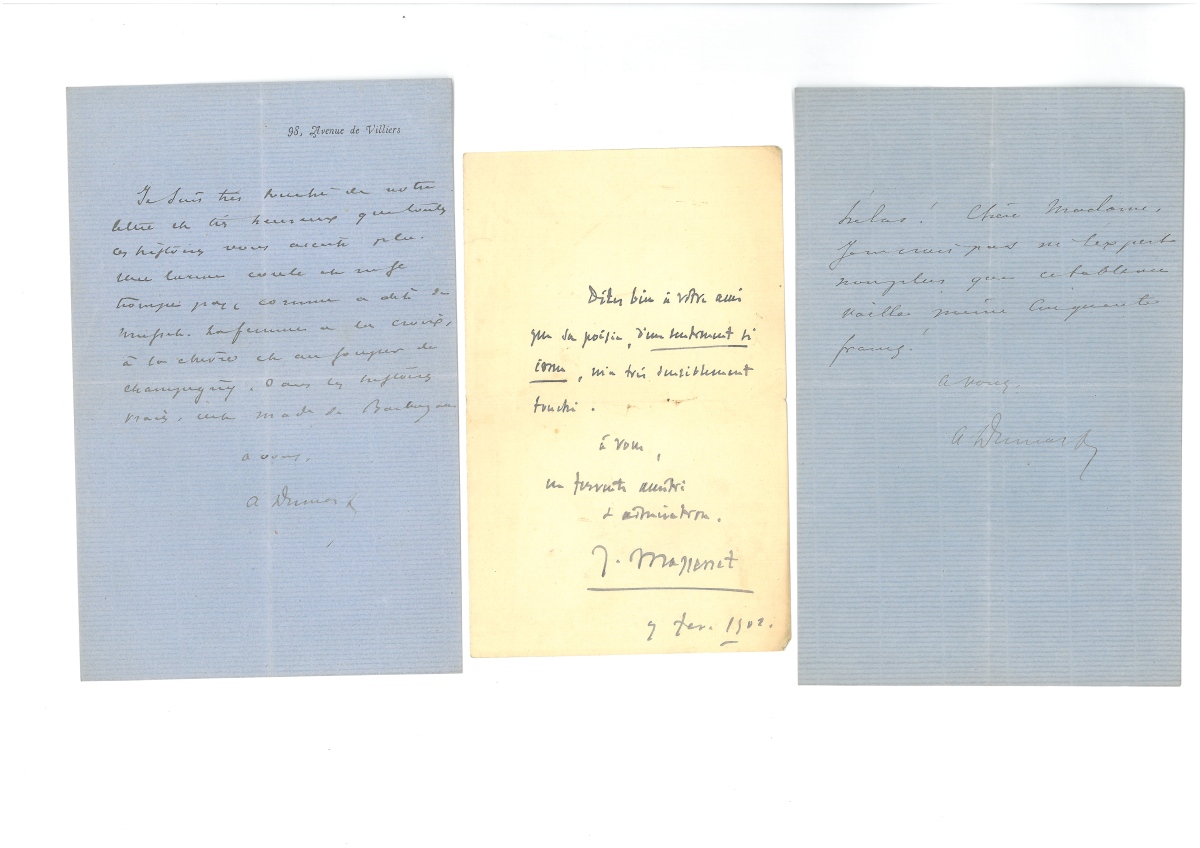 98, Avenue de Villiers
Je suis très touché de votre
lettre et très heureux que toutes
ces histoires vous aient plu.
Une larme coule et ne se
trompe pas, comme a dit de
Musset. La femme a la croix,
à la chèvre et au
champagne. Dans les histoires
vraies, cette made de
a vous.
A Dumas f
Dites bien à votre ami
que sa poésie, d'un sentiment si
, m'a très sensiblement
touché.
à vous,
en fervente amitié
& admiration.
J. Massenet
9 fev. 1902.
Hélas! Chère Madame,
Je ne crois pas ni l'expert
non plus que ce tableau
vaille même cinquante
francs.
a vous.
A Dumas f